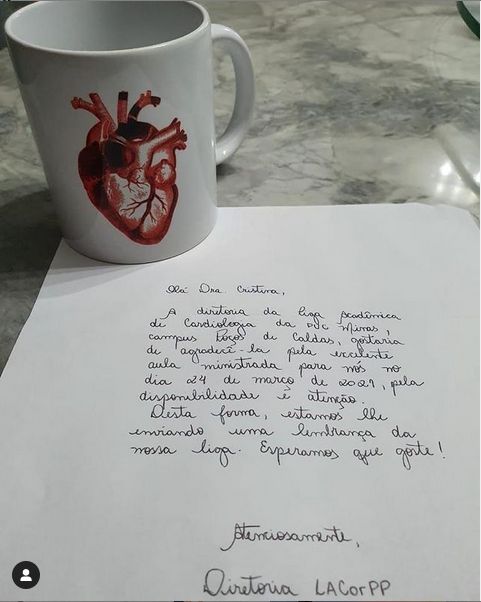 Olá Dra. Cristina,
A diretoria da liga Acadêmica
de Cardiologia da PUC Minas,
campus Poços de Caldas, gostaria
de agradecê-la pela excelente
aula ministrada para nós no
dia 24 de março de 2021, pela
disponibilidade e atenção.
Desta forma, estamos lhe
enviando uma lembrança da
nossa liga. Esperamos que goste!
Atenciosamente,
Diretoria LACorPP